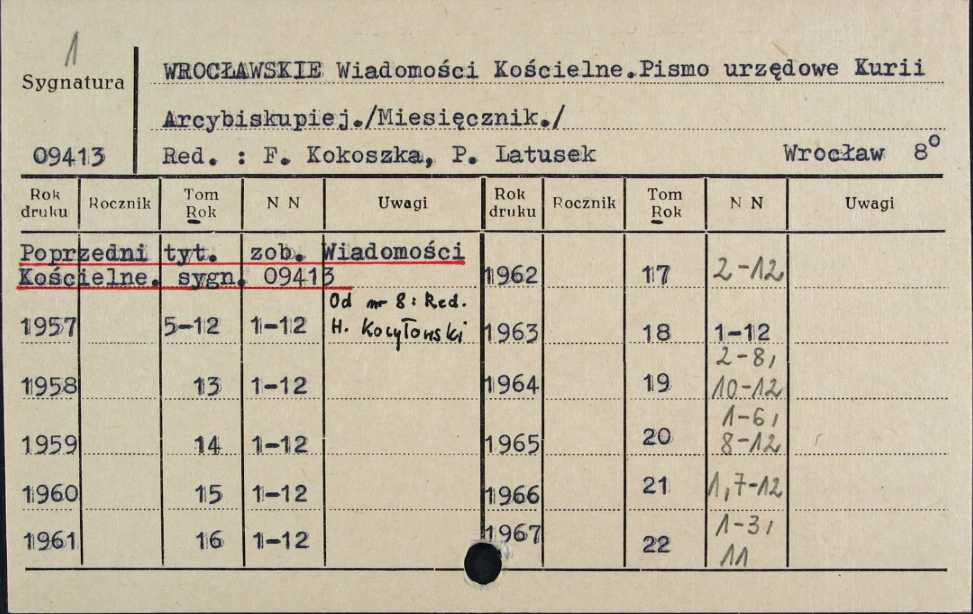 1
Sygnatura
WROCŁAWSKIE Wiadomości Kościelne.Pismo urzędowe Kurii
Arcybiskupiej./Miesięcznik./
09413
Red. : F. Kokoszka, P. Latusek Wrocław 8°
Rok druku Rocznik Tom Rok N N Uwagi Rok druku Rocznik Tom Rok N N Uwagi
Poprzedni tyt. zob. Wiadomości
Kościelne. sygn. 09413
1957 5-12 1-12 Od nr 8: Red. H. Kocyłowski
1958 13 1-12
1959 14 1-12
1960 15 1-12
1961 16 1-12
1962 17 2-12
1963 18 1-12
1964 19 2-8, 10-12
1965 20 1-6, 8-12
1966 21 1,7-12
1967 22 1-3, 11